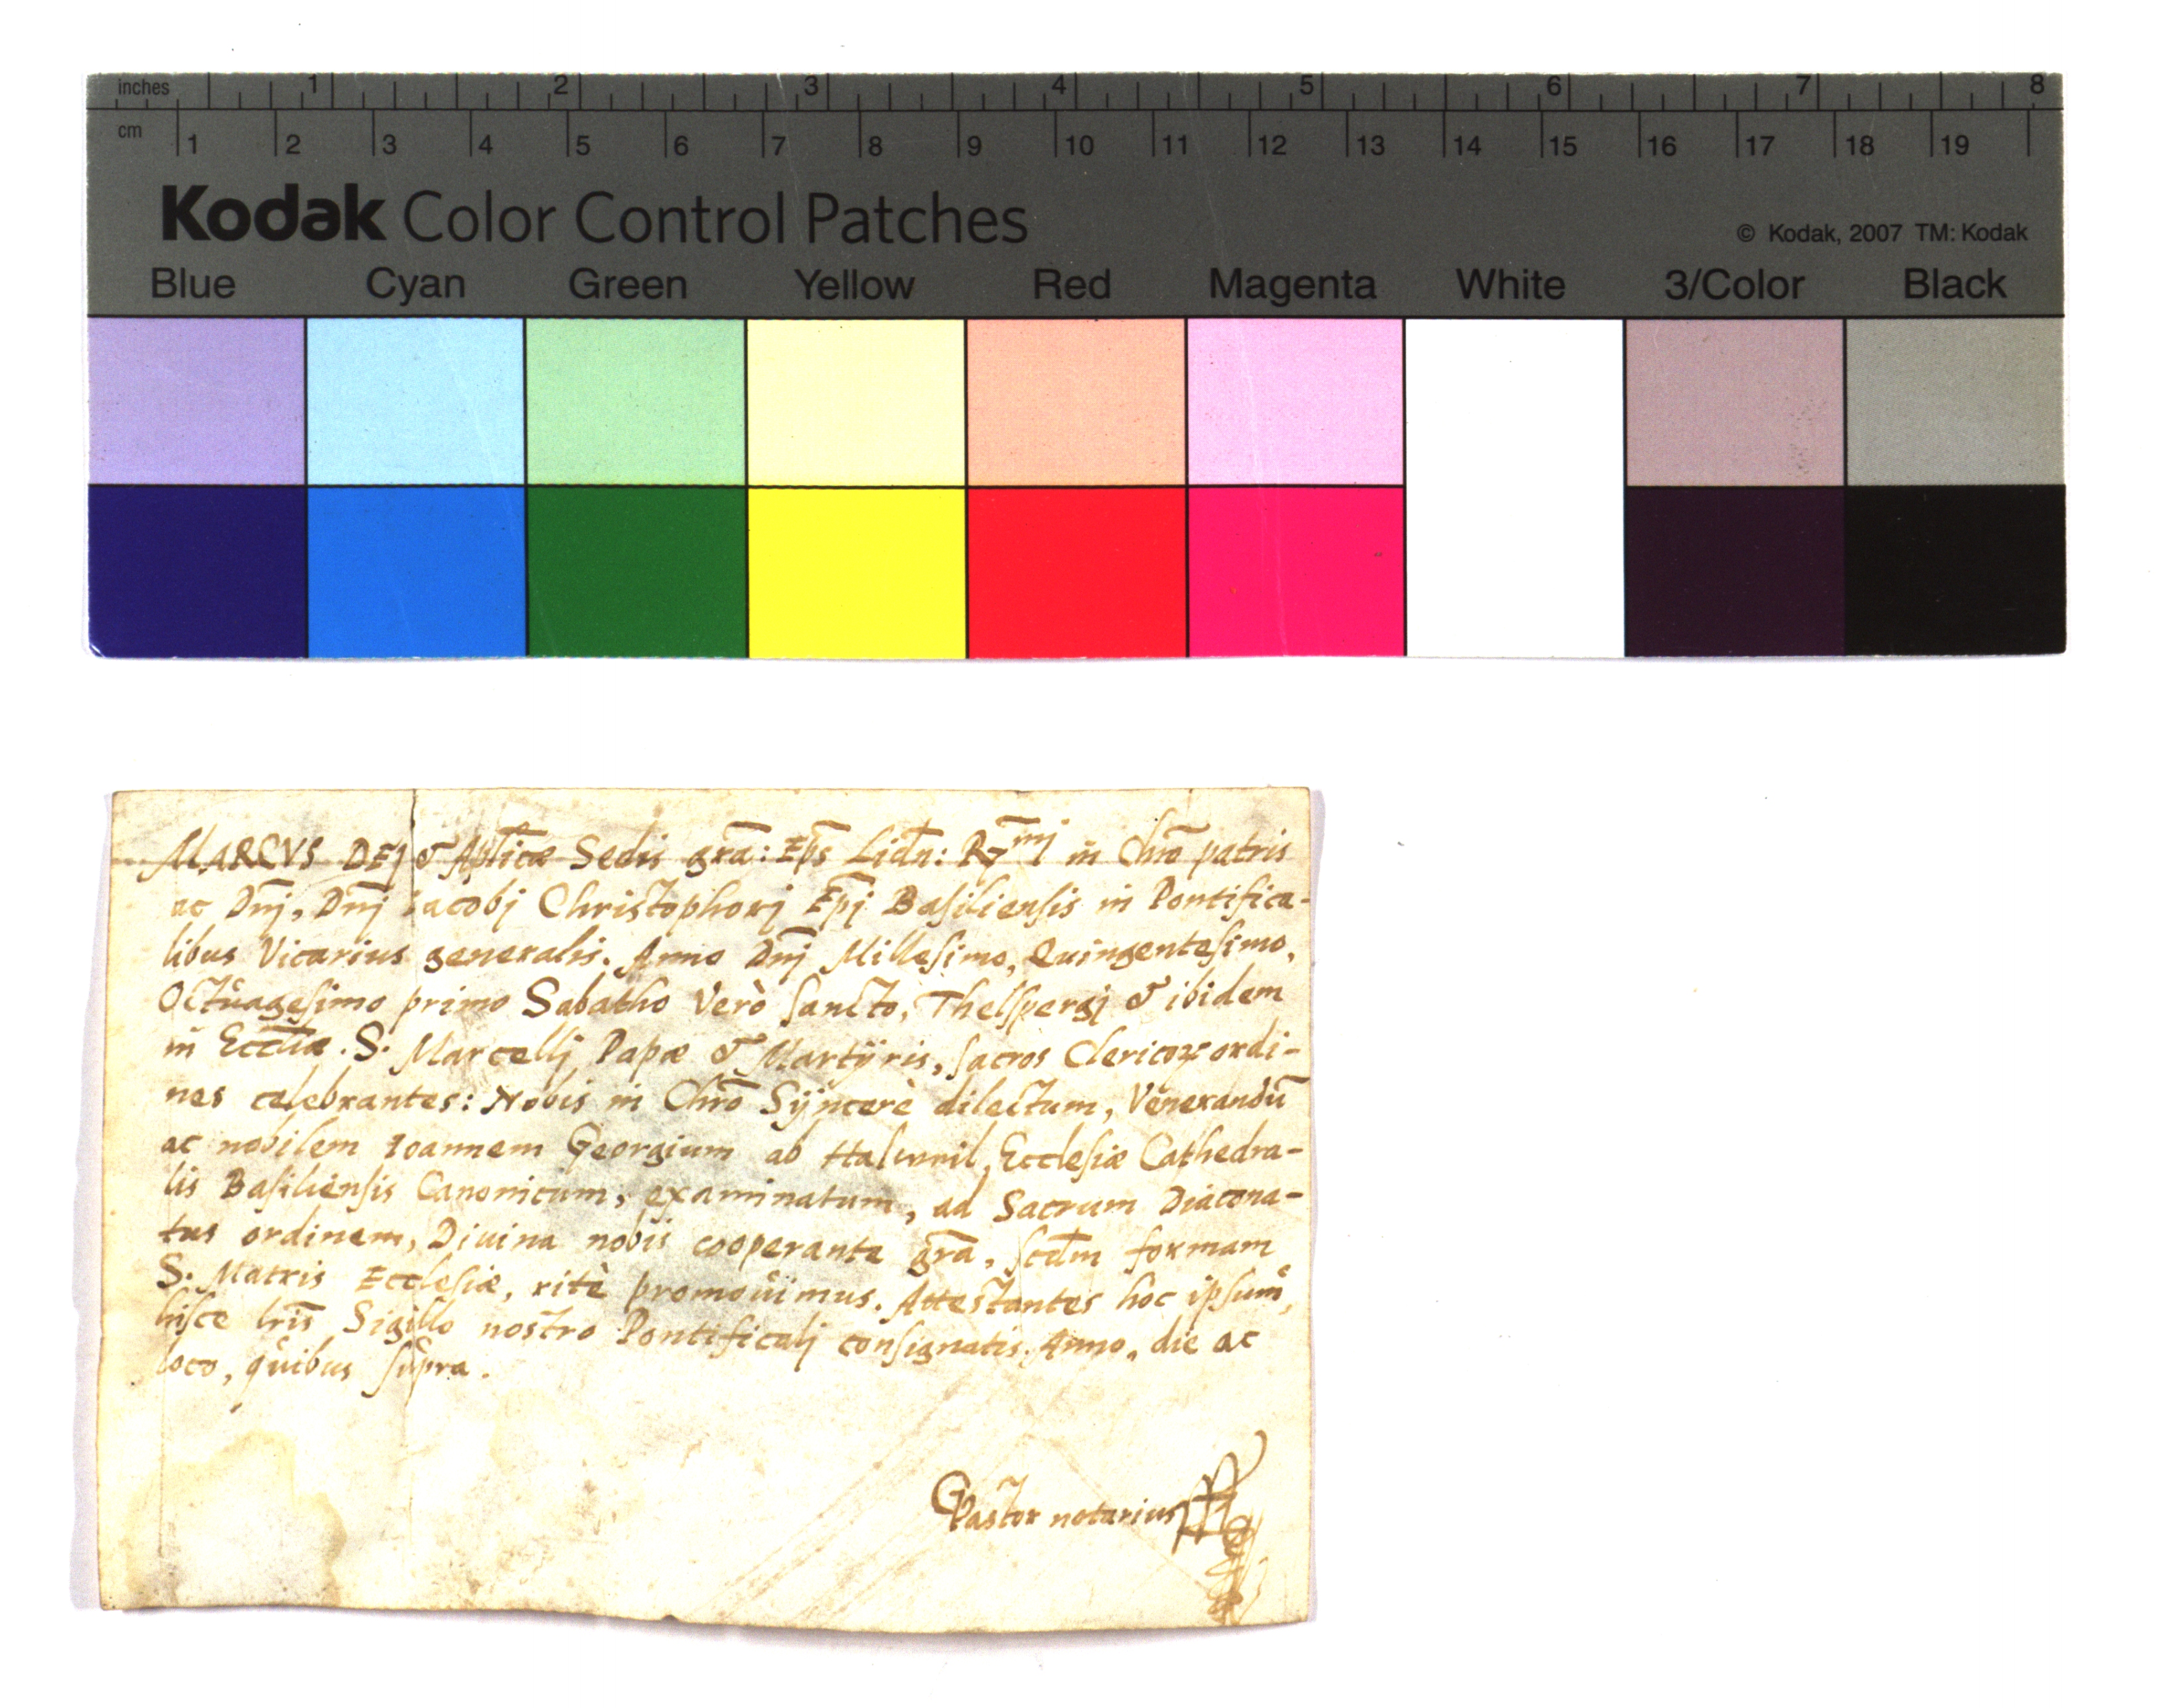 inches 1 2 3 4 5 6 7 8
cm 1 2 3 4 5 6 7 8 9 10 11 12 13 14 15 16 17 18 19
Kodak Color Control Patches
© Kodak, 2007 TM: Kodak
Blue Cyan Green Yellow Red Magenta White 3/Color Black
MARCVS DEJ & Aplicæ Sedis gra: Eps Lidn: Rmj in Chro patris
ac Dnj, Dnj Jacobj Christophorj Epj Basiliensis in Pontifica-
libus Vicarius generalis. Anno Dnj Millesimo, Quingentesimo,
Octuagesimo primo Sabatho Verò sancto, Thelspergj & ibidem
in Eccliæ. S. Marcellj Papæ & Martÿris, sacros Clericoꝝ ordi-
nes celebrantes: Nobis in Chro Sÿncerè dilectum, Venerandū
ac nobilem Ioannem Georgium ab Halwwil, Ecclesiæ Cathedra-
lis Basiliensis Canonicum, examinatum, ad Sacrum Diacona-
tus ordinem, Diuina nobis cooperante gra, scdm formam
S. Matris Ecclesiæ, ritè promouimus. Attestantes hoc ipsum,
hisce lris Sigillo nostro Pontificalj consignatis. Anno, die ac
loco, quibus supra.
GPastor notarius